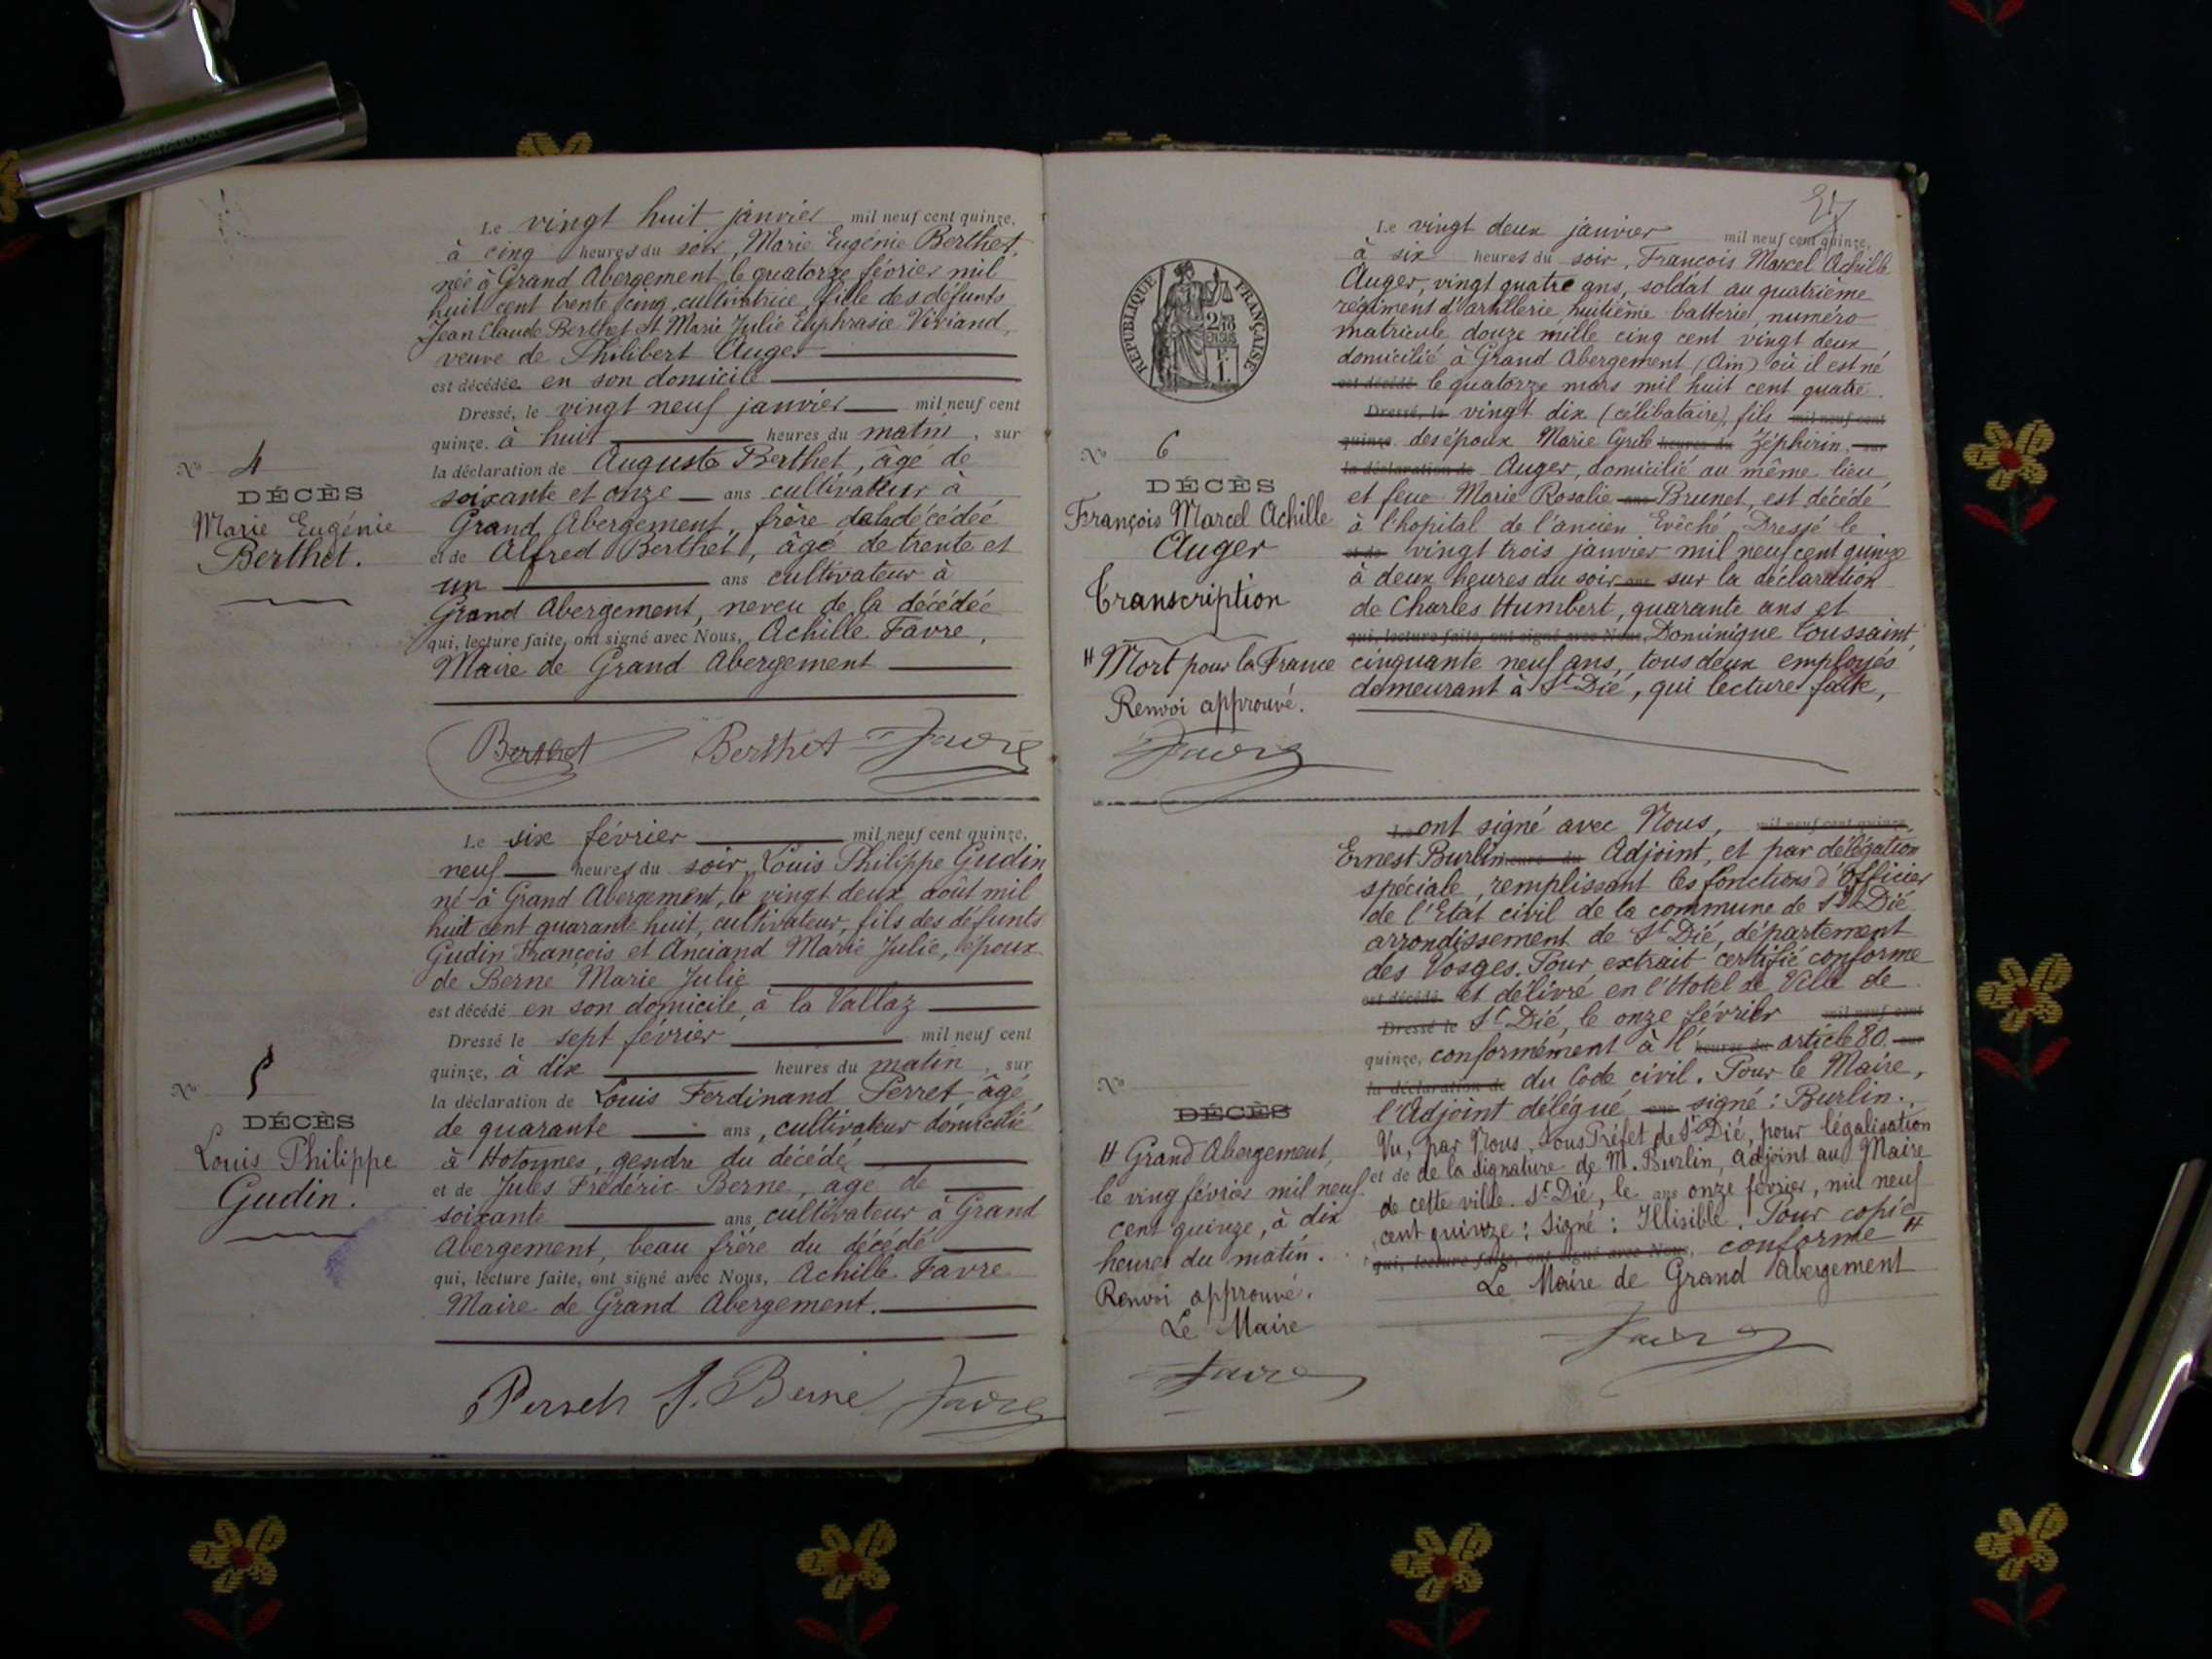 Le vingt huit janvier mil neuf cent quinze,
à cinq heures du soir, Marie Eugénie Berthet,
née à Grand Abergement le quatorze février mil
huit cent trente cinq, cultivatrice, fille des défunts
Jean Claude Berthet et Marie Julie Euphrasie Viviand,
veuve de Philibert Auger
est décédée en son domicile
Dressé, le vingt neuf janvier mil neuf cent
quinze, à huit heures du matin, sur
la déclaration de Auguste Berthet, âgé de
soixante et onze ans cultivateur à
Grand Abergement, frère de la décédée
et de Alfred Berthet, âgé de trente et
un ans cultivateur à
Grand Abergement, neveu de la décédée
qui, lecture faite, ont signé avec Nous, Achille Favre,
Maire de Grand Abergement
No 4
DÉCÈS
Marie Eugénie
Berthet.
Berthet Berthet Favre
Le six février mil neuf cent quinze,
neuf heures du soir, Louis Philippe Gudin
né à Grand Abergement, le vingt deux août mil
huit cent quarante huit, cultivateur, fils des défunts
Gudin François et Anciand Marie Julie, époux
de Berne Marie Julie
est décédé en son domicile à la Vallaz
Dressé le sept février mil neuf cent
quinze, à dix heures du matin, sur
la déclaration de Louis Ferdinand Perret âgé
de quarante ans, cultivateur domicilié
à Hotonnes, gendre du décédé
et de Jules Frédéric Berne, age de
soixante ans, cultivateur à Grand
Abergement, beau frère du décédé
qui, lecture faite, ont signé avec Nous, Achille Favre
Maire de Grand Abergement.
No 5
DÉCÈS
Louis Philippe
Gudin.
J. Berne Favre
Le vingt deux janvier mil neuf cent quinze,
à six heures du soir, François Marcel Achille
Auger, vingt quatre ans, soldat au quatrième
régiment d'artillerie, huitième batterie, numéro
matricule douze mille cinq cent vingt deux
domicilié à Grand Abergement (Ain) où il est né
est décédé le quatorze mars mil huit cent quatre
Dressé, le vingt dix (célibataire), fils mil neuf cent
quinze, des époux Marie Cyrile heures du Zéphirin, sur
la déclaration de Auger, domicilié au même lieu,
et feue Marie Rosalie ans Brunet, est décédé
à l'hopital de l'ancien Evêché. Dressé le
et de vingt trois janvier mil neuf cent quinze
à deux heures du soir ans sur la déclaration
de Charles Humbert, quarante ans et
qui, lecture faite, ont signé avec Nous, Dominique Toussaint
cinquante neuf ans, tous deux employés
demeurant à St Dié, qui lecture faite,
RÉPUBLIQUE FRANÇAISE
No 6
DÉCÈS
François Marcel Achille
Auger
Transcription
# Mort pour la France
Renvoi approuvé.
Favre
Le ont signé avec Nous, mil neuf cent quinze,
Ernest Burlin heures du Adjoint, et par délégation
spéciale, remplissant les fonctions d'Officier
de l'Etat civil de la commune de St Dié
arrondissement de St Dié, département
des Vosges. Pour extrait certifié conforme
est décédé et délivré en l'Hotel de Ville de
Dressé le St Dié, le onze février mil neuf cent
quinze, conformément à l' heures du article 80 sur
la déclaration de du Code civil. Pour le Maire,
l'Adjoint délégué ans signé : Burlin.
Vu, par Nous, Sous Préfet de St Dié, pour légalisation
et de de la signature de M. Burlin, adjoint au Maire
de cette ville. St Dié, le ans onze février, mil neuf
cent quinze : Signé : Illisible. Pour copie
qui, lecture faite, ont signé avec Nous, conforme #
Le Maire de Grand Abergement
Favre
No
DÉCÈS
# Grand Abergement,
le ving février mil neuf
cent quinze, à dix
heures du matin.
Renvoi approuvé.
Le Maire
Favre